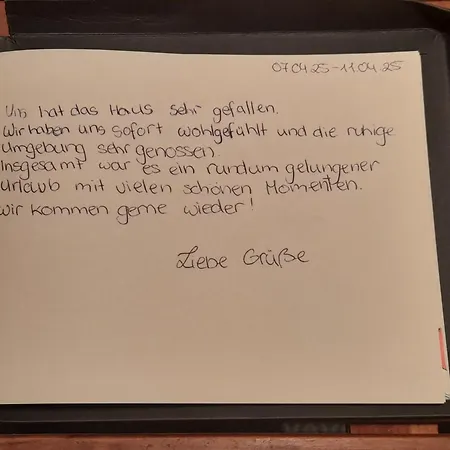 07.04.25-11.04.25
Uns hat das Haus sehr gefallen.
Wir haben uns sofort wohlgefühlt und die ruhige
Umgebung sehr genossen.
Insgesamt war es ein rundum gelungener
Urlaub mit vielen schönen Momenten.
Wir kommen gerne wieder!
Liebe Grüße